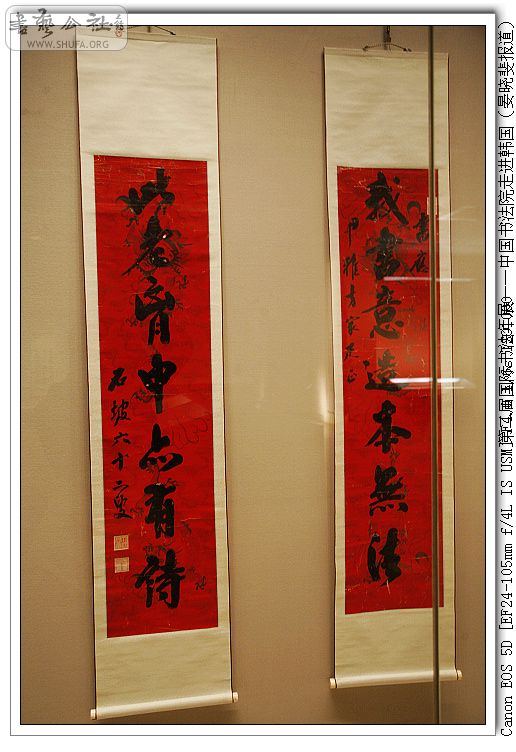 書藝公社
WWW.SHUFA.ORG
我書意造本無法
雅方家是正
此老胷中亦有詩
石坡六十二叟
Canon EOS 5D [EF24-105mm f/4L IS USM]
国际书法年展——中国书法院走进韩国（晏晓斐报道）